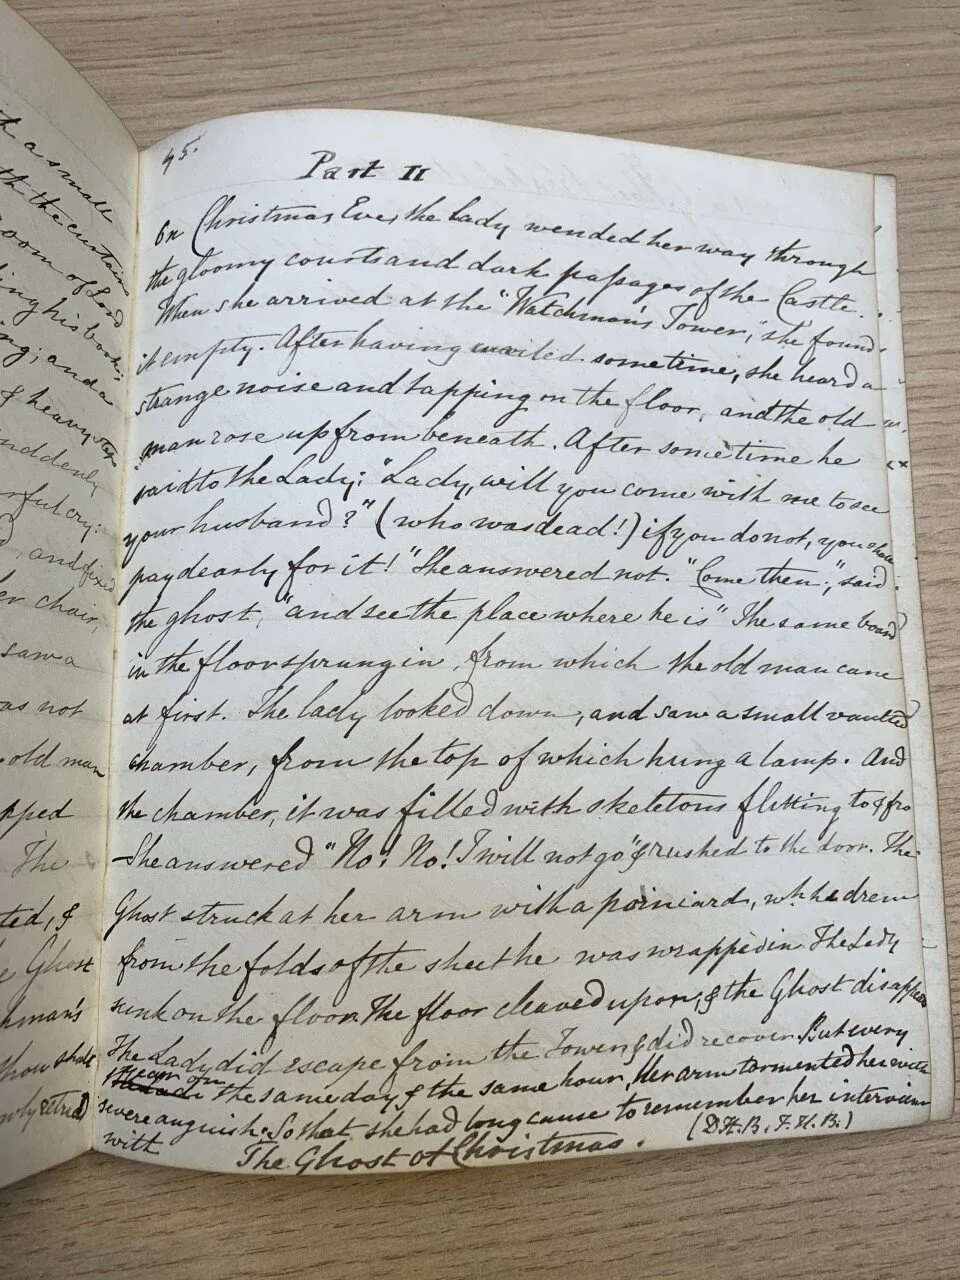 th a small
th the curtain
room of Lord
ing his book;
ng; and a
& heavy step
uddenly
rful cry:
d, and fixed
er chair,
saw a
as not
old man
pped
The
ted, &
e Ghost
hman's
thou shalt
wly retired
45.
Part II
On Christmas Eve, the Lady wended her way through
the gloomy courts and dark passages of the Castle.
When she arrived at the "Watchman's Tower," she found
it empty. After having waited sometime, she heard a
strange noise and tapping on the floor, and the old
man rose up from beneath. After sometime he
said to the Lady; "Lady, will you come with me to see
your husband?" (who was dead!) if you do not, you shall
pay dearly for it!" She answered not. "Come then," said
the ghost, "and see the place where he is" The same board
in the floor sprung in, from which the old man came
at first. The lady looked down, and saw a small vaulted
chamber, from the top of which hung a lamp. And
the chamber, it was filled with skeletons flitting to & fro
She answered "No! No! I will not go" & rushed to the door. The
Ghost struck at her arm with a poiniard, wh. he drew
from the folds of the sheet he was wrapped in The Lady
sunk on the floor. The floor cleaved upon, & the Ghost disappear
The Lady did escape from the Tower & did recover. But every
year on the same day & the same hour, Her arm tormented her with
severe anguish. So that she had long cause to remember her interview
with The Ghost of Christmas. (D.H.B., F.H.B.)